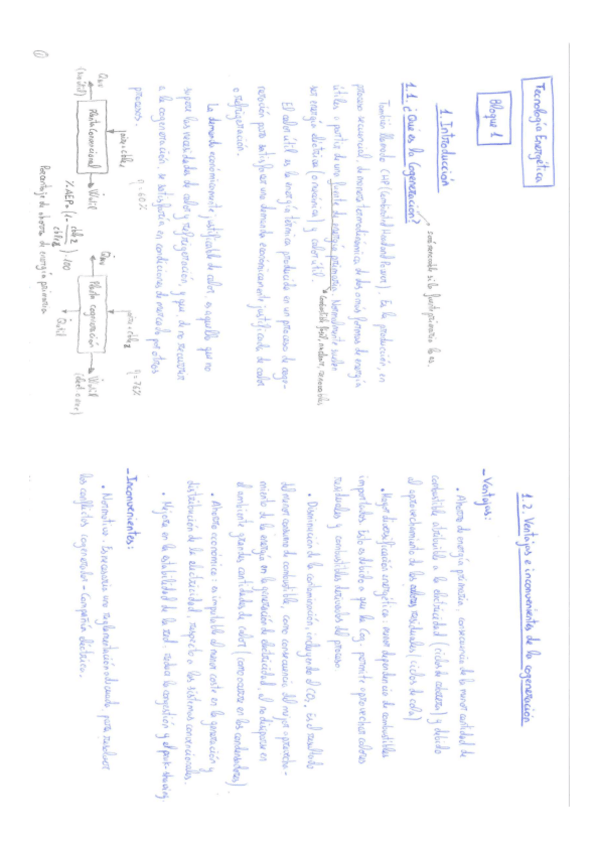 Tecnología Energética
Bloque 1
1. Introducción
será renovable si la fuente primaria lo es.
1.1. ¿Qué es la Cogeneración?
También llamado CHP (Combined Heat and Power). Es la producción, en
proceso secuencial, de manera termodinámica, de dos o más formas de energía
útiles a partir de una fuente de energía primaria. Normalmente suelen
ser energía eléctrica (o mecánica) y calor útil.
Combustible fósil, nuclear, renovables
El calor útil es la energía térmica producida en un proceso de coge-
neración para satisfacer una demanda económicamente justificada de calor
o refrigeración.
La demanda económicamente justificable de calor es aquella que no
supera las necesidades de calor y refrigeración, y que, de no recurrirse
a la cogeneración, se satisfaría en condiciones de mercado por otros
procesos.
η=60%
η=76%
Planta Convencional
Planta cogeneración
Wútil
Qútil
(heat & power)
%AEP=(1- )·100
Porcentaje de ahorro de energía primaria
1
1.2. Ventajas e inconvenientes de la cogeneración
- Ventajas:
• Ahorro de energía primaria: consecuencia de la menor cantidad de
combustible atribuible a la electricidad (ciclos de cabecera) y debido
al aprovechamiento de los calores residuales (ciclos de cola).
• Mayor diversificación energética: menor dependencia de combustibles
importados. Esto es debido a que la Cog. permite aprovechar calores
residuales y combustibles derivados del proceso
• Disminución de la contaminación, incluyendo el CO₂. Es el resultado
del menor consumo de combustible, como consecuencia del mejor aprovecha-
miento de la energía en la generación de electricidad, al no disiparse en
el ambiente grandes cantidades de calor (como ocurre en los condensadores).
• Ahorro económico: es imputable al menor coste en la generación y
distribución de la electricidad, respecto a los sistemas convencionales.
• Mejora en la estabilidad de la red: reduce la congestión y el peak-shaving.
- Inconvenientes:
• Normativa. Es necesaria una reglamentación adecuada para resolver
los conflictos cogenerador - Compañía eléctrica.